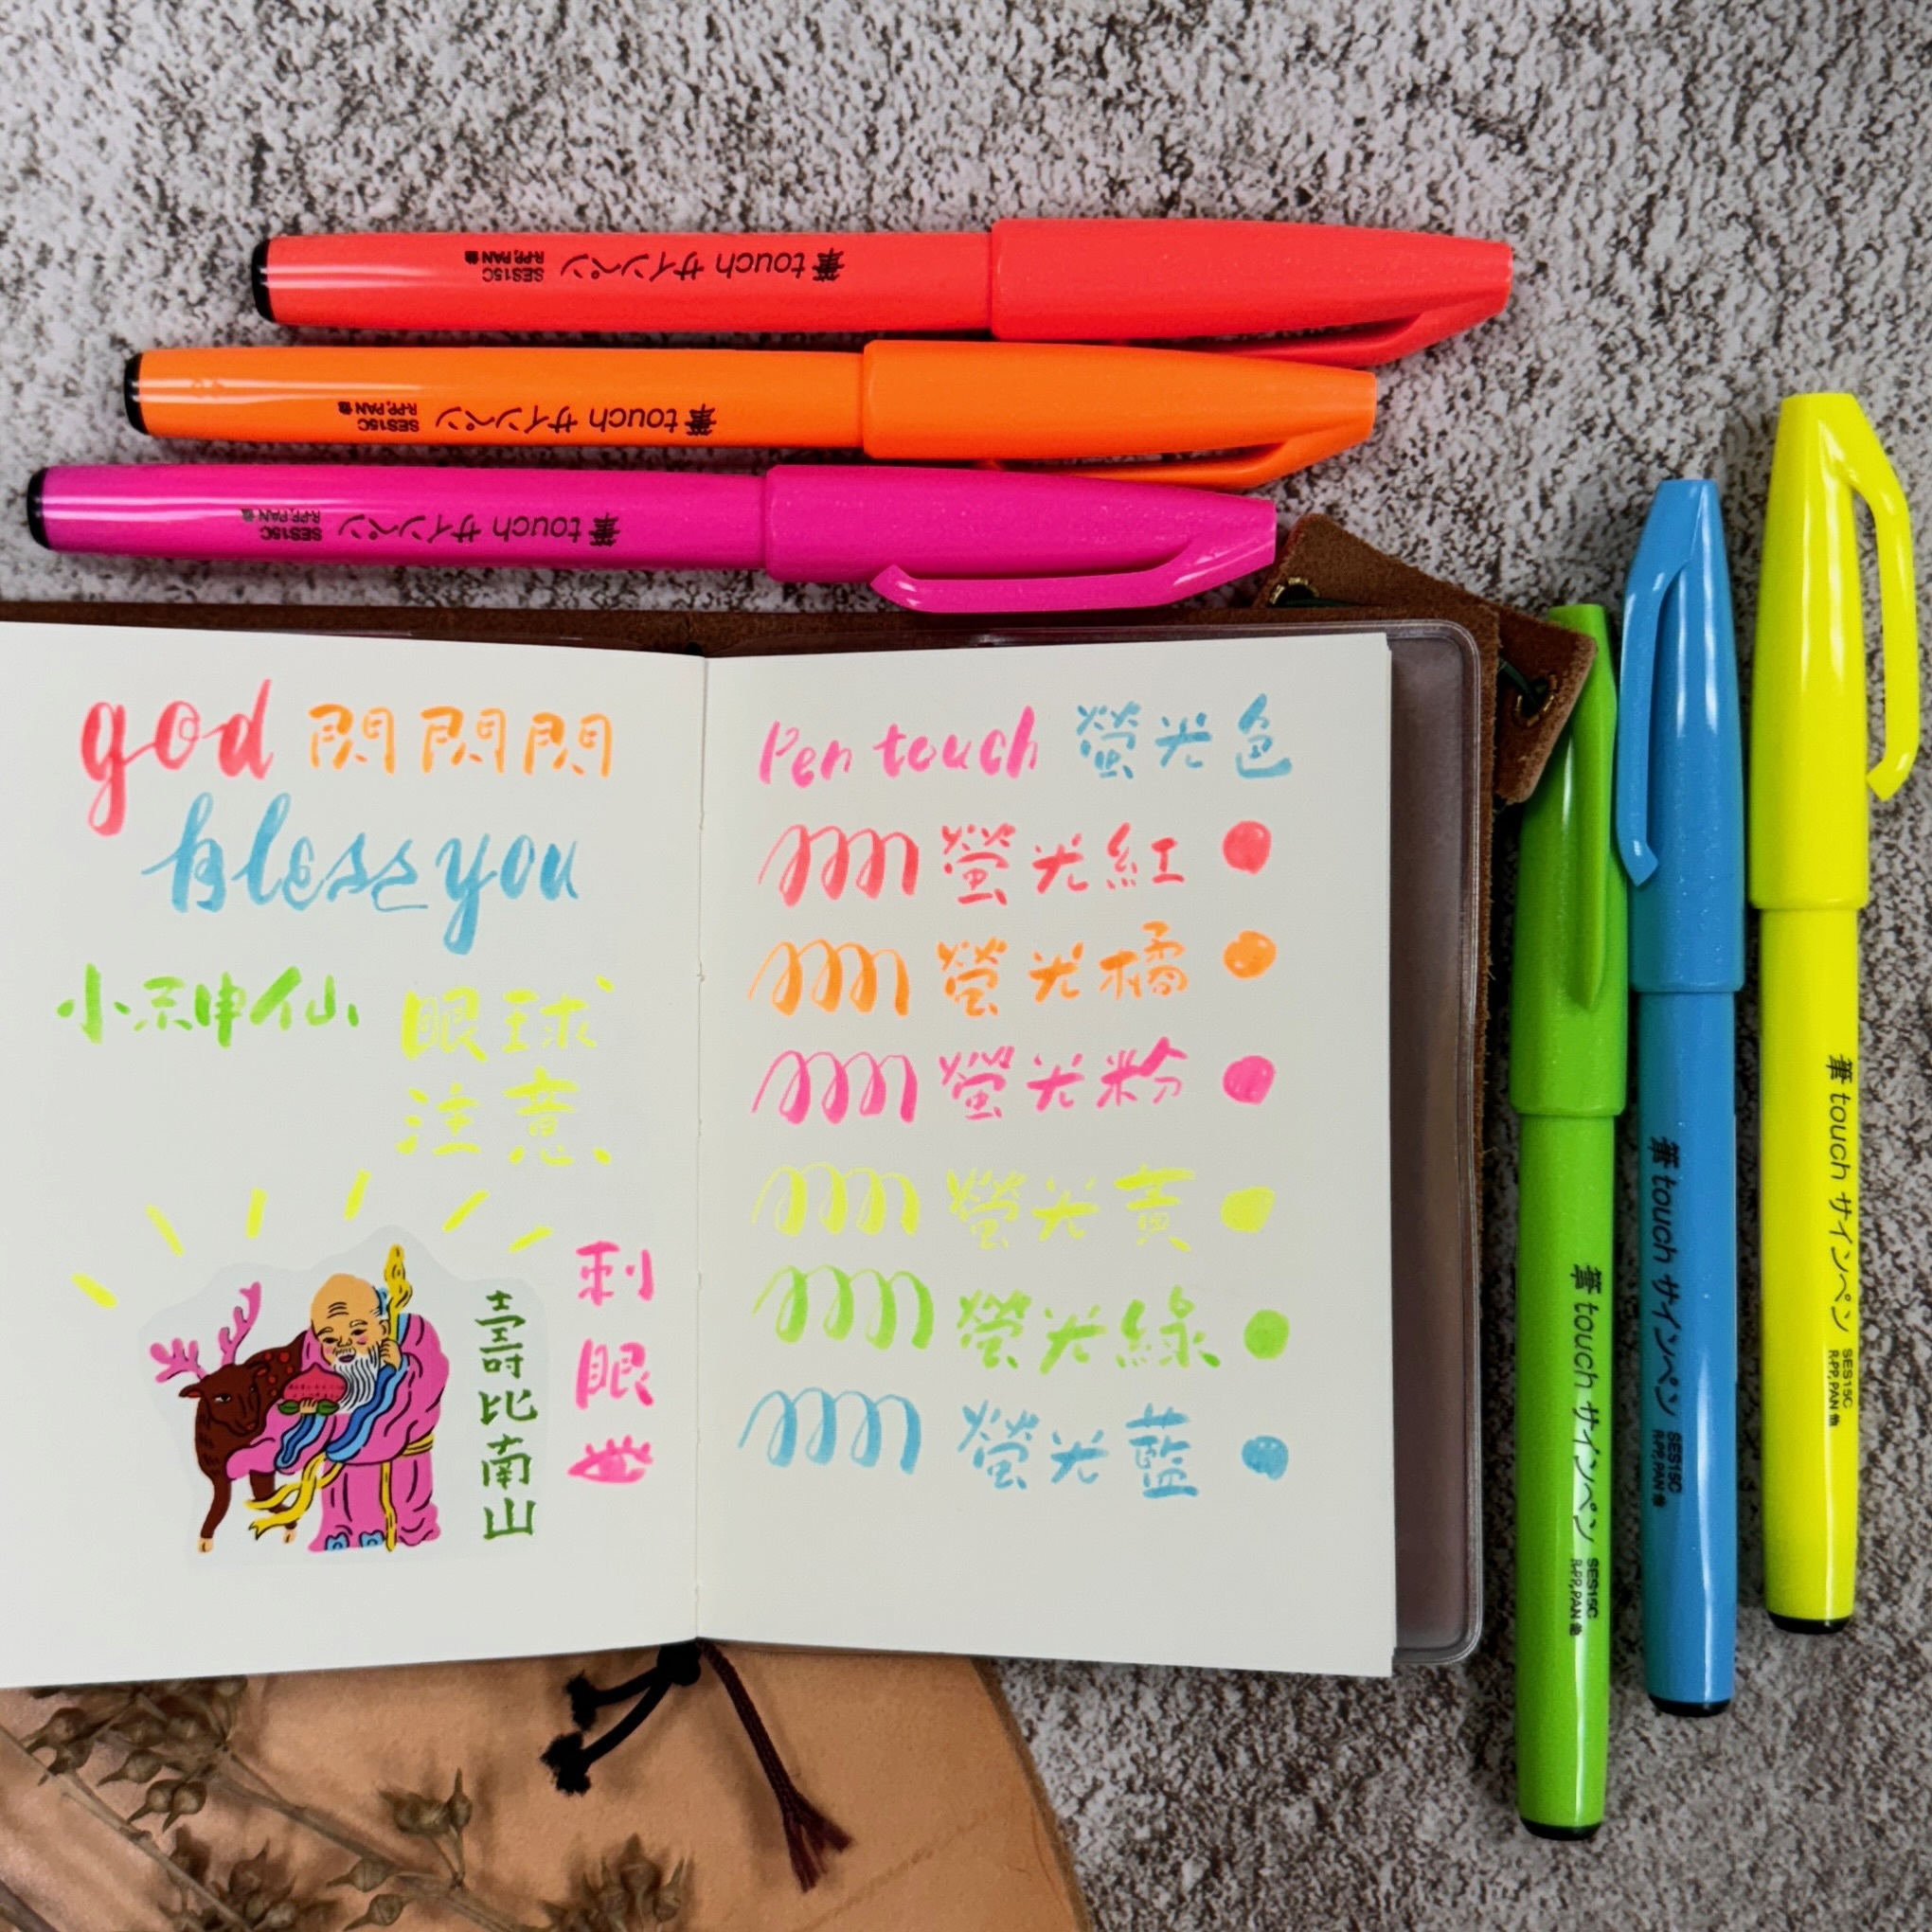 筆touch サインペン SES15C R-PP,PAN 他
筆touch サインペン SES15C R-PP,PAN 他
筆touch サインペン SES15C R-PP,PAN 他
god 閃閃閃
bless you
小神仙
眼球
注意
壽比南山
刺眼
Pen touch 螢光色
螢光紅
螢光橘
螢光粉
螢光黃
螢光綠
螢光藍
筆touch サインペン SES15C R-PP,PAN 他
筆touch サインペン SES15C R-PP,PAN 他
筆touch サインペン SES15C R-PP,PAN 他